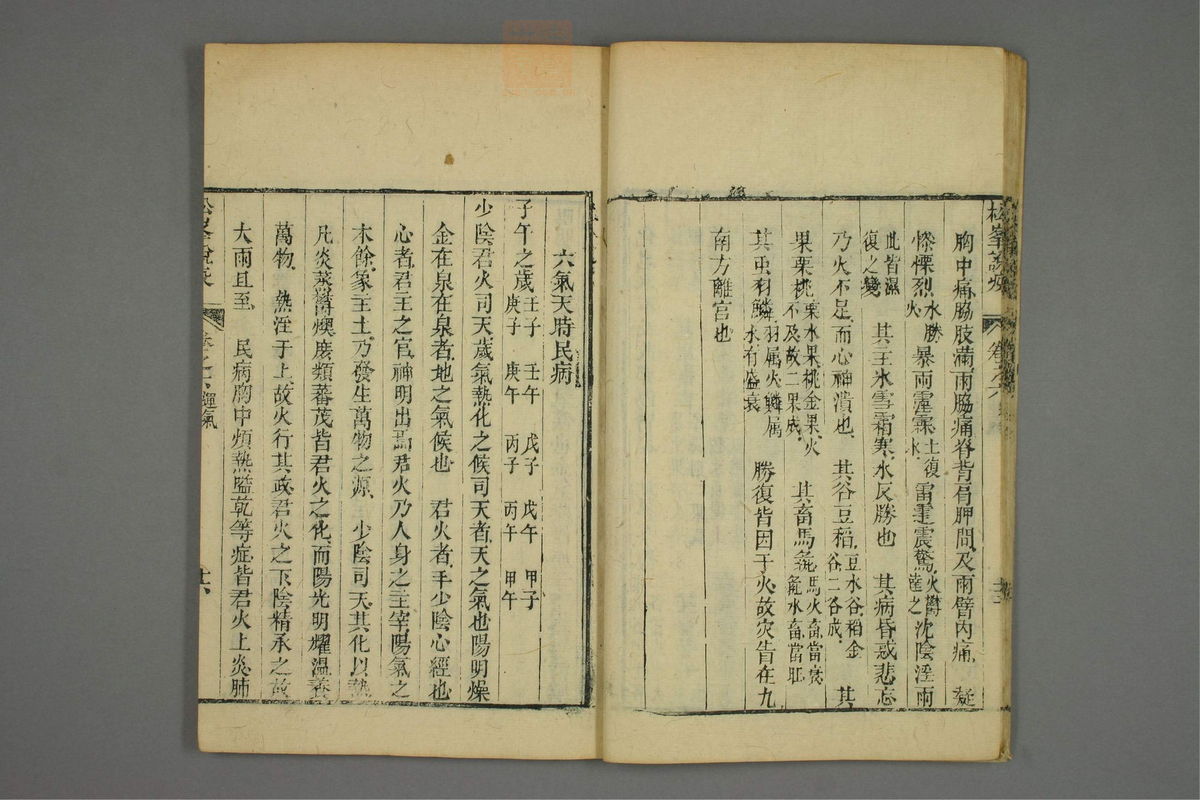 松峯說疫 卷之六
胸中痛脇肢滿兩脇痛脊背肩胛間及兩臂內痛 凝
慘慄烈水勝火 暴雨霪霖土復水 雷霆震驚火鬱達之 沈陰淫雨
此皆濕復之變 其主氷雪霜寒水反勝也 其病昏惑悲忘
乃火不足而心神潰也 其谷豆稻豆水谷稻金谷二谷成 其
果栗桃栗水果桃金果火不及故二果成 其畜馬彘馬火畜當衰彘水畜當旺
其虫羽鱗羽属火鱗属水有盛衰 勝復皆因于火故灾眚在九
南方離宮也
六氣天時民病
子午之歲 壬子 壬午 戊子 戊午 甲子 庚子 庚午 丙子 丙午 甲午
少陰君火司天歲氣熱化之候司天者天之氣也陽明燥
金在泉在泉者地之氣候也 君火者手少陰心經也
心者君主之官神明出焉君火乃人身之主宰陽氣之
木餘象主土乃發生萬物之源 少陰司天其化以熱
凡炎蒸鬱燠庶類蕃茂皆君火之化而陽光明耀溫養
萬物 熱淫于上故火行其政君火之下陰精承之故
大雨且至 民病胸中煩熱嗌乾等症皆君火上炎肺
松峯說疫 卷之六 運氣